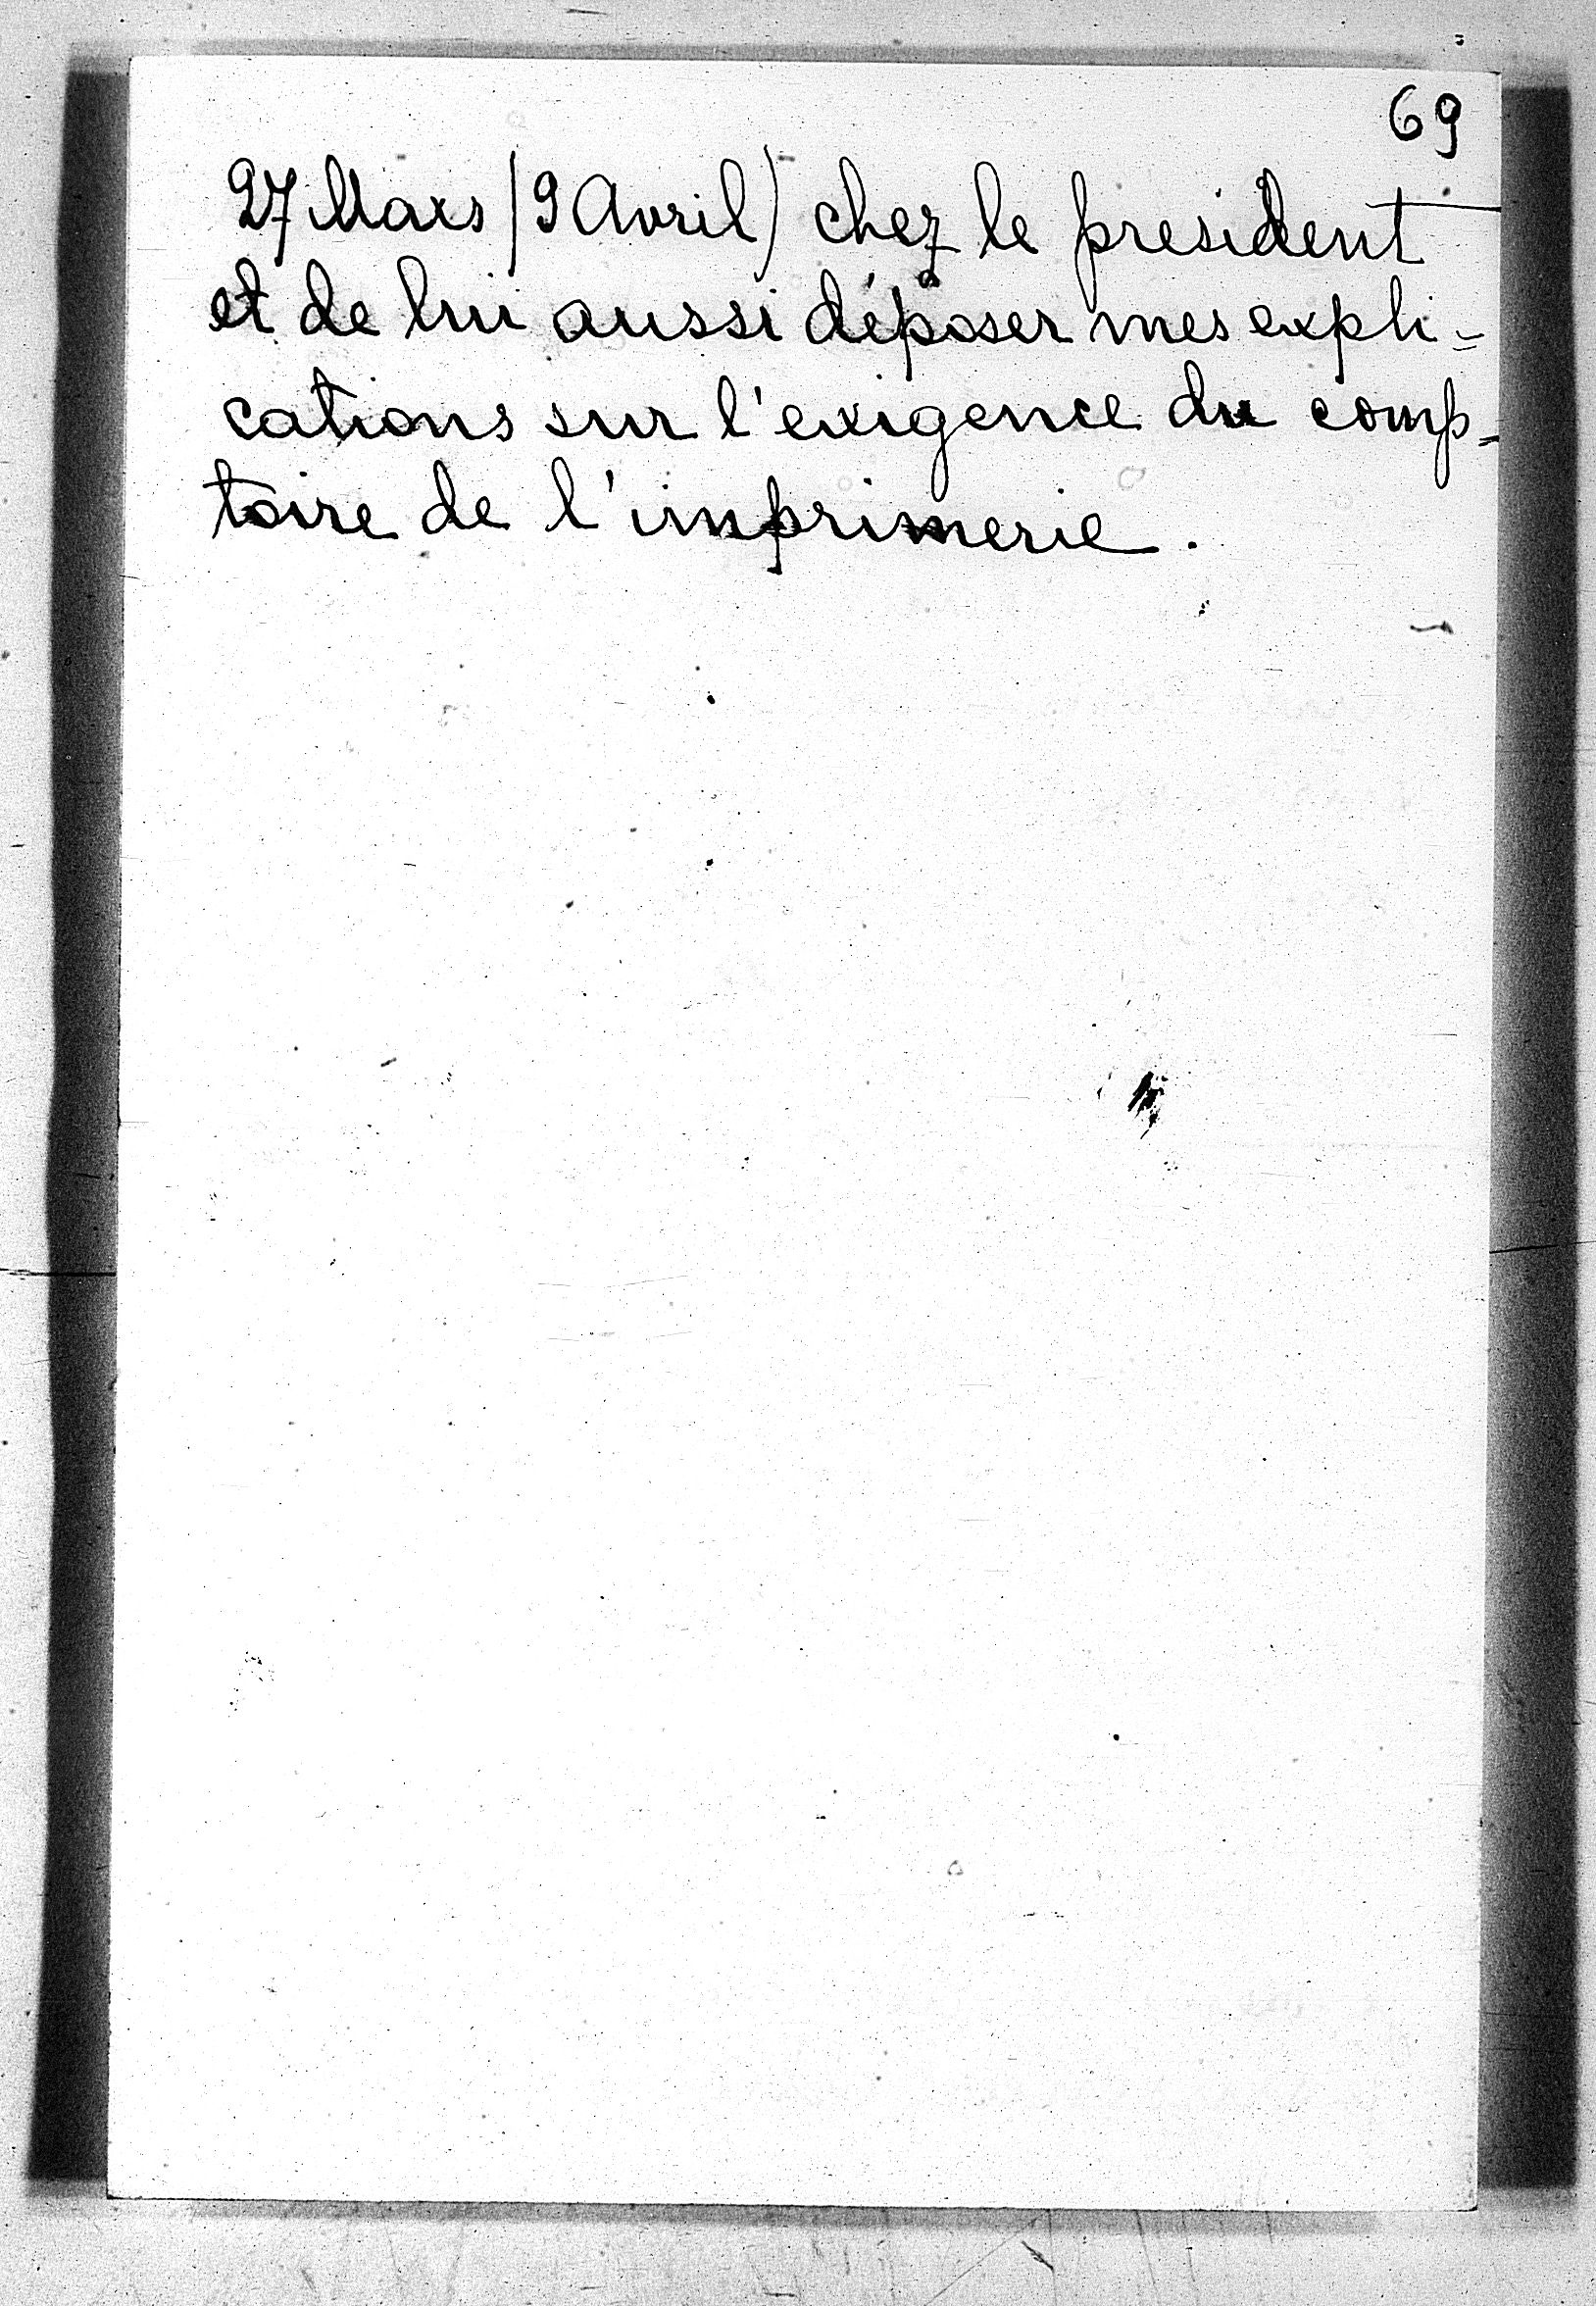 69
27 Mars (9 Avril) chez le president
et de lui aussi déposer mes expli=
cations sur l'exigence du comp-
toire de l'imprimerie.